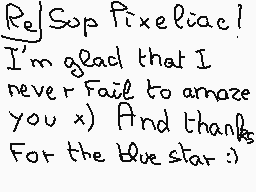 Re/ Sup Pixeliac!
I'm glad that I
never Fail to amaze
you x) And thanks
For the blue star :)